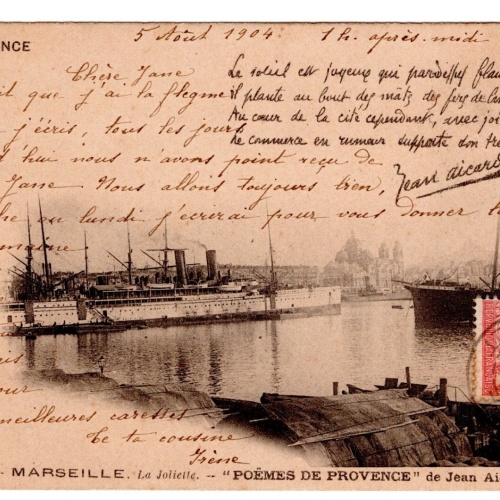 NCE
5 Août 1904. 1h. après-midi
Chère Jane
Le soleil est joyeux qui
il plante au bout des mâts des
Au cœur de la cité cependant, avec
Le commerce en rumeur supporte son
Jean Aicard
que j'ai la flegme
j'écris, tous les jours
hui nous n'avons point reçu de
Jane Nous allons toujours bien,
ou lundi j'écrirai pour vous donner
maine
meilleures caresses
Ta cousine
Irène
- MARSEILLE. La Joliette. - "POÈMES DE PROVENCE" de Jean Ai